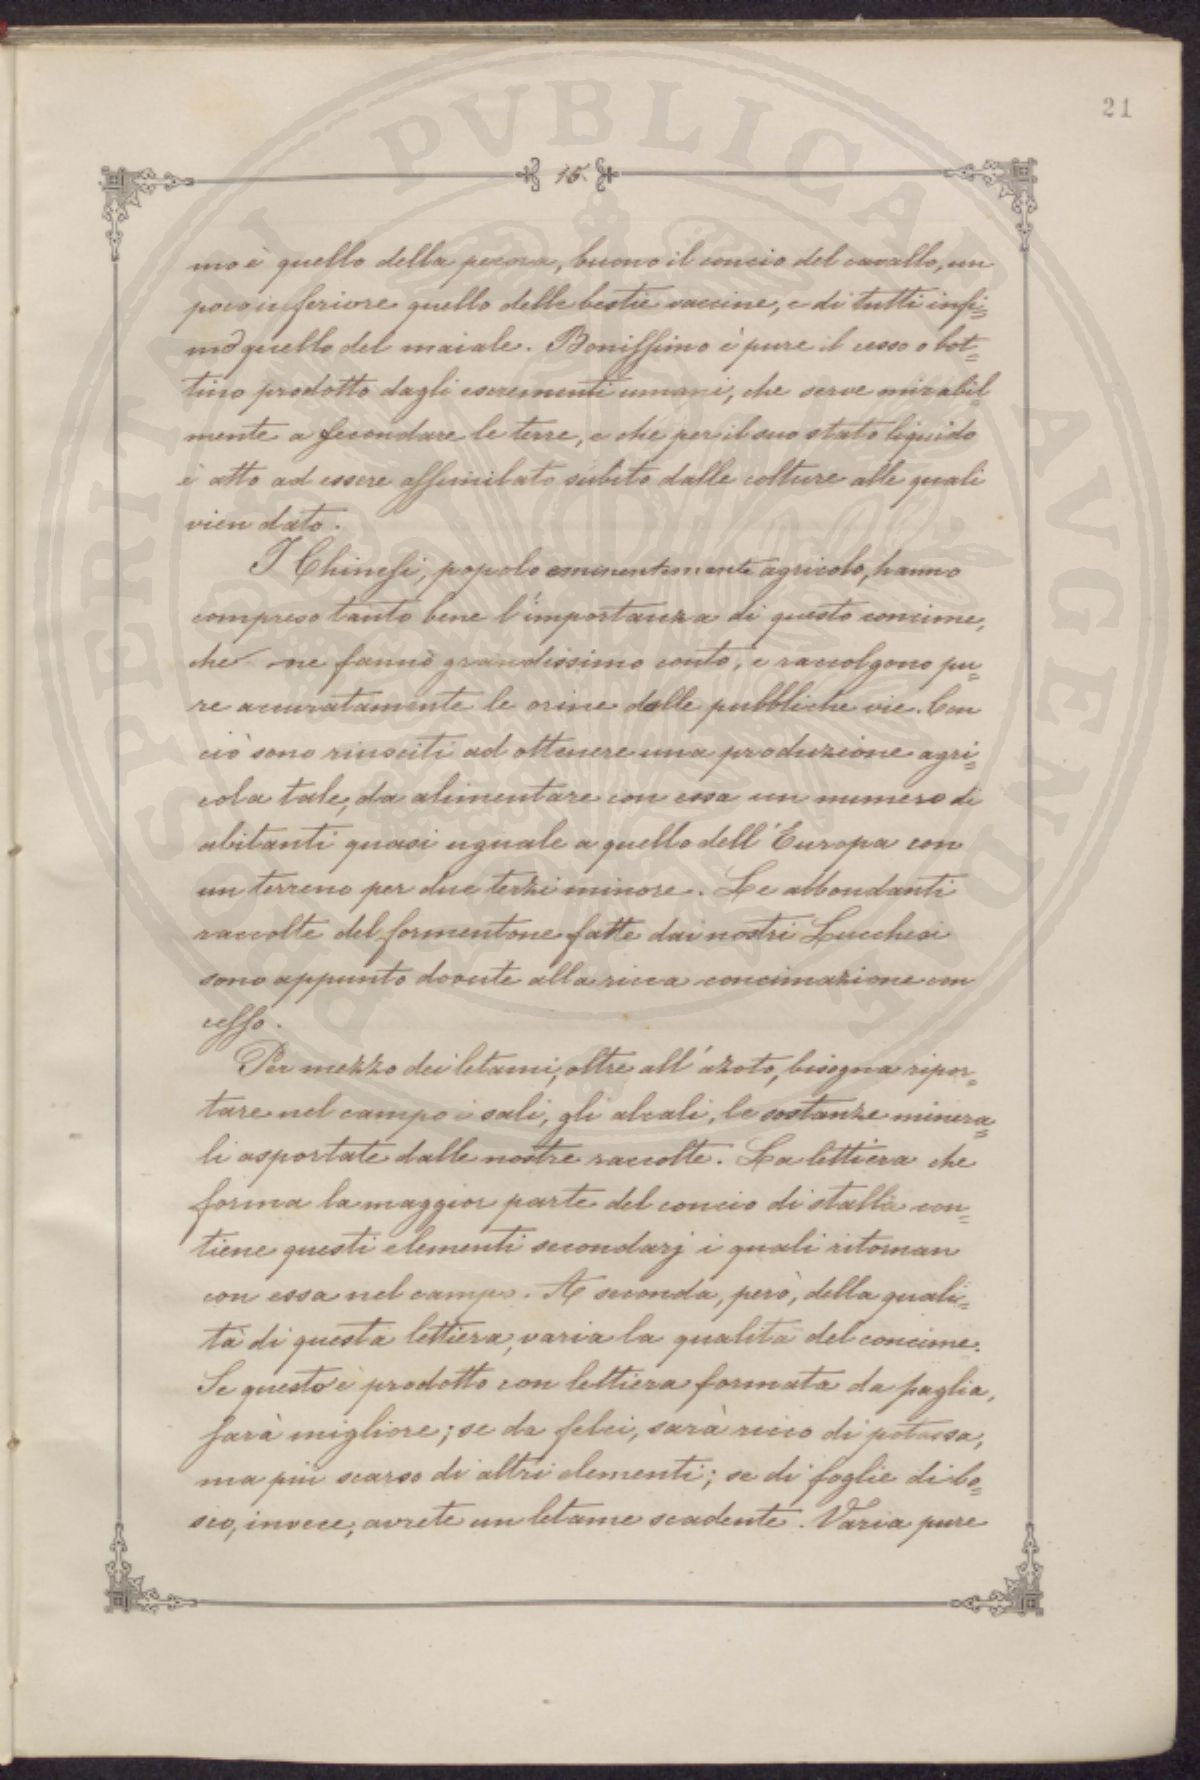 21
15.
mo è quello della pecora, buono il concio del cavallo, un
poco inferiore quello delle bestie vaccine, e di tutti infi=
mo quello del maiale. Bonissimo è pure il cesso o bot=
tino prodotto dagli escrementi umani, che serve mirabil
mente a fecondare le terre, e che per il suo stato liquido
è atto ad essere assimilato subito dalle colture alle quali
vien dato.
I Chinesi, popolo eminentemente agricolo, hanno
compreso tanto bene l'importanza di questo concime,
che ne fanno grandissimo conto, e raccolgono pu=
re accuratamente le orine dalle pubbliche vie. Con
ciò sono riusciti ad ottenere una produzione agri=
cola tale, da alimentare con essa un numero di
abitanti quasi uguale a quello dell'Europa con
un terreno per due terzi minore. Le abbondanti
raccolte del formentone fatte dai nostri Lucchesi
sono appunto dovute alla ricca concimazione con
cesso.
Per mezzo dei letami, oltre all'azoto, bisogna ripor=
tare nel campo i sali, gli alcali, le sostanze minera=
li asportate dalle nostre raccolte. La lettiera che
forma la maggior parte del concio di stalla con=
tiene questi elementi secondarj i quali ritornan
con essa nel campo. A seconda, però, della quali=
tà di questa lettiera, varia la qualità del concime.
Se questo è prodotto con lettiera formata da paglia,
sarà migliore; se da felci, sarà ricco di potassa,
ma più scarso di altri elementi; se di foglie di bo=
sco, invece, avrete un letame scadente. Varia pure
PROSPERITATI PVBLICAE AVGENDAE